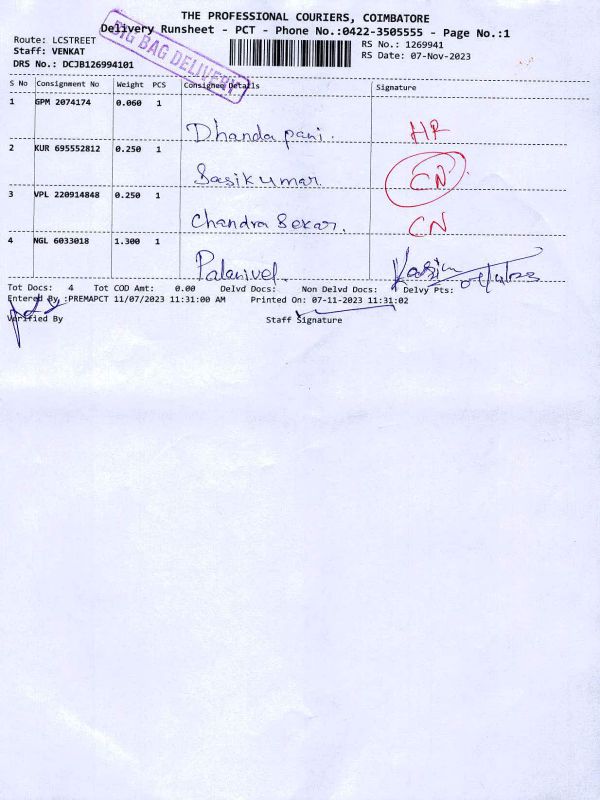 THE PROFESSIONAL COURIERS, COIMBATORE
Delivery Runsheet - PCT - Phone No.:0422-3505555 - Page No.:1
BIG BAG DELIVERY
Route: LCSTREET
RS No.: 1269941
Staff: VENKAT
RS Date: 07-Nov-2023
DRS No.: DCJB126994101
S No Consignment No Weight PCS Consignee Details Signature
1 GPM 2074174 0.060 1
Dhandapani. HR
2 KUR 695552812 0.250 1
Sasikumar CN
3 VPL 220914848 0.250 1
Chandra Sekar. CN
4 NGL 6033018 1.300 1
Palanivel.
Tot Docs: 4 Tot COD Amt: 0.00 Delvd Docs: Non Delvd Docs: Delvy Pts:
Entered By :PREMAPCT 11/07/2023 11:31:00 AM Printed On: 07-11-2023 11:31:02
Verified By Staff Signature